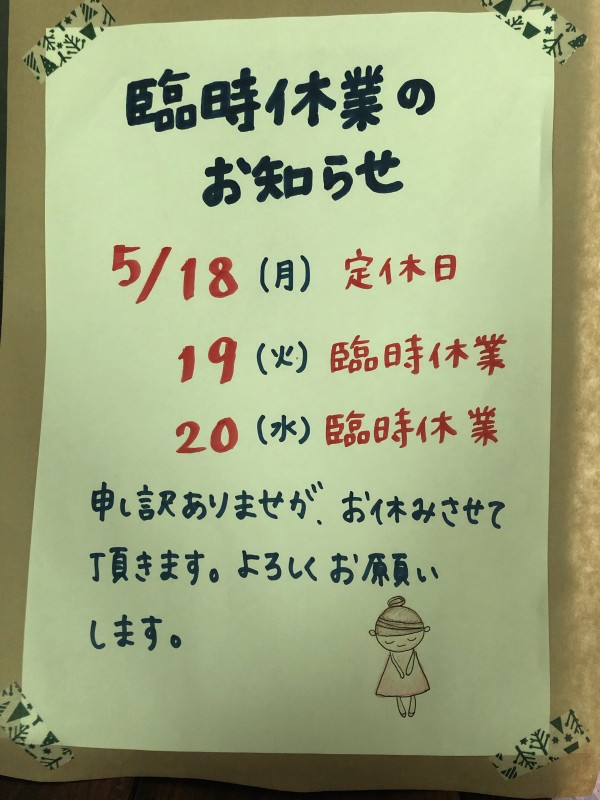 臨時休業の
お知らせ
5/18(月) 定休日
19(火) 臨時休業
20(水) 臨時休業
申し訳ありませが、お休みさせて
頂きます。よろしくお願い
します。